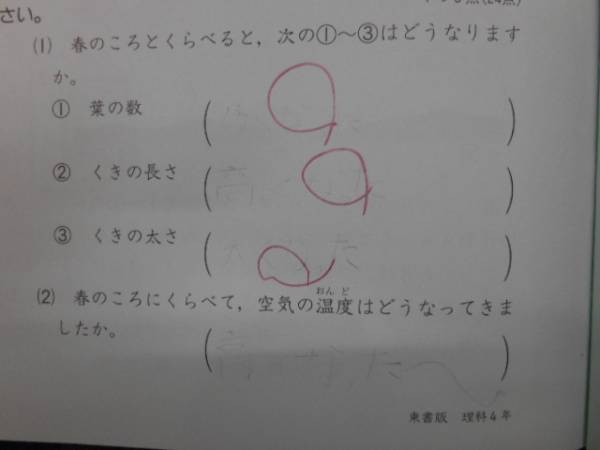 さい。
(1) 春のころとくらべると，次の①〜③はどうなります
か。
① 葉の数 ( )
② くきの長さ (高くなった)
③ くきの太さ (太くなった)
(2) 春のころにくらべて，空気の温度はどうなってきま
したか。
(高くなった)
東書版 理科4年